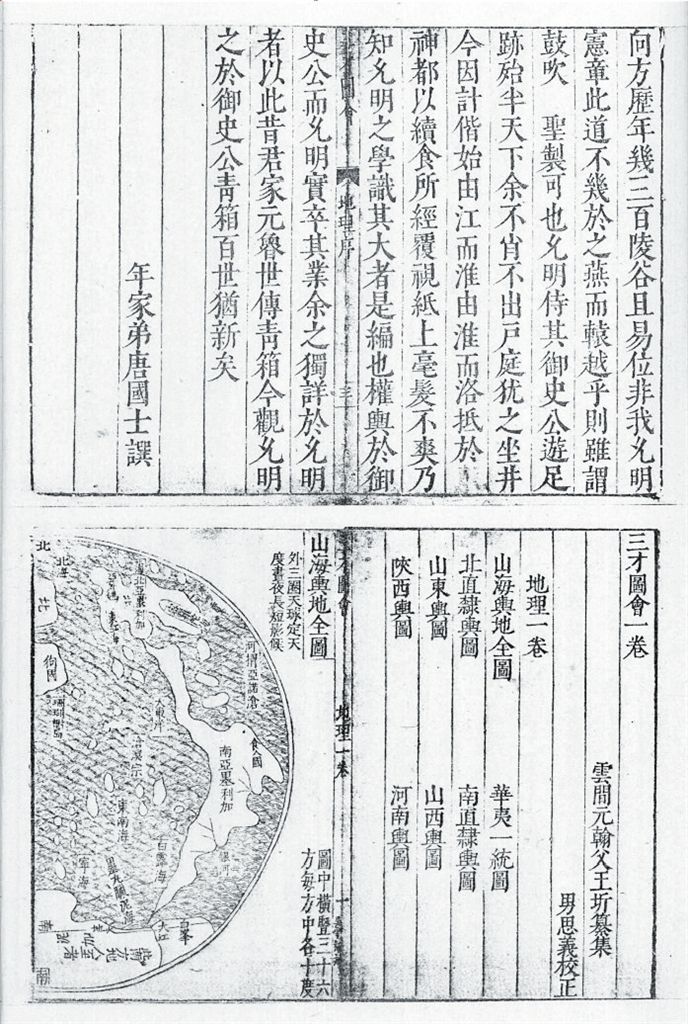 向方歷年幾三百陵谷且易位非我允明
憲章此道不幾於之燕而轅越乎則雖謂
鼓吹　聖製可也允明侍其御史公遊足
跡殆半天下余不肖不出戸庭犹之坐井
今因計偕始由江而淮由淮而洛抵於
神都以續食所經覆視紙上毫髮不爽乃
知允明之學識其大者是編也權輿於御
地理序
史公而允明實卒其業余之獨詳於允明
者以此昔君家元魯世傳靑箱今觀允明
之於御史公靑箱百世猶新矣
年家弟唐國士譔
三才圖會一卷
雲間元翰父王圻纂集
男思義校正
地理一卷
山海輿地全圖
華夷一統圖
北直隸輿圖
南直隸輿圖
山東輿圖
山西輿圖
陝西輿圖
河南輿圖
三才圖會
地理一卷
一
山海輿地全圖
外三圈天球定天
度晝夜長短影候
圖中橫豎三十六
方每方中各十度
北
北海
狗國
食人國
南亞墨利加
大東洋
東南海
白露海
寧海
白峯
南